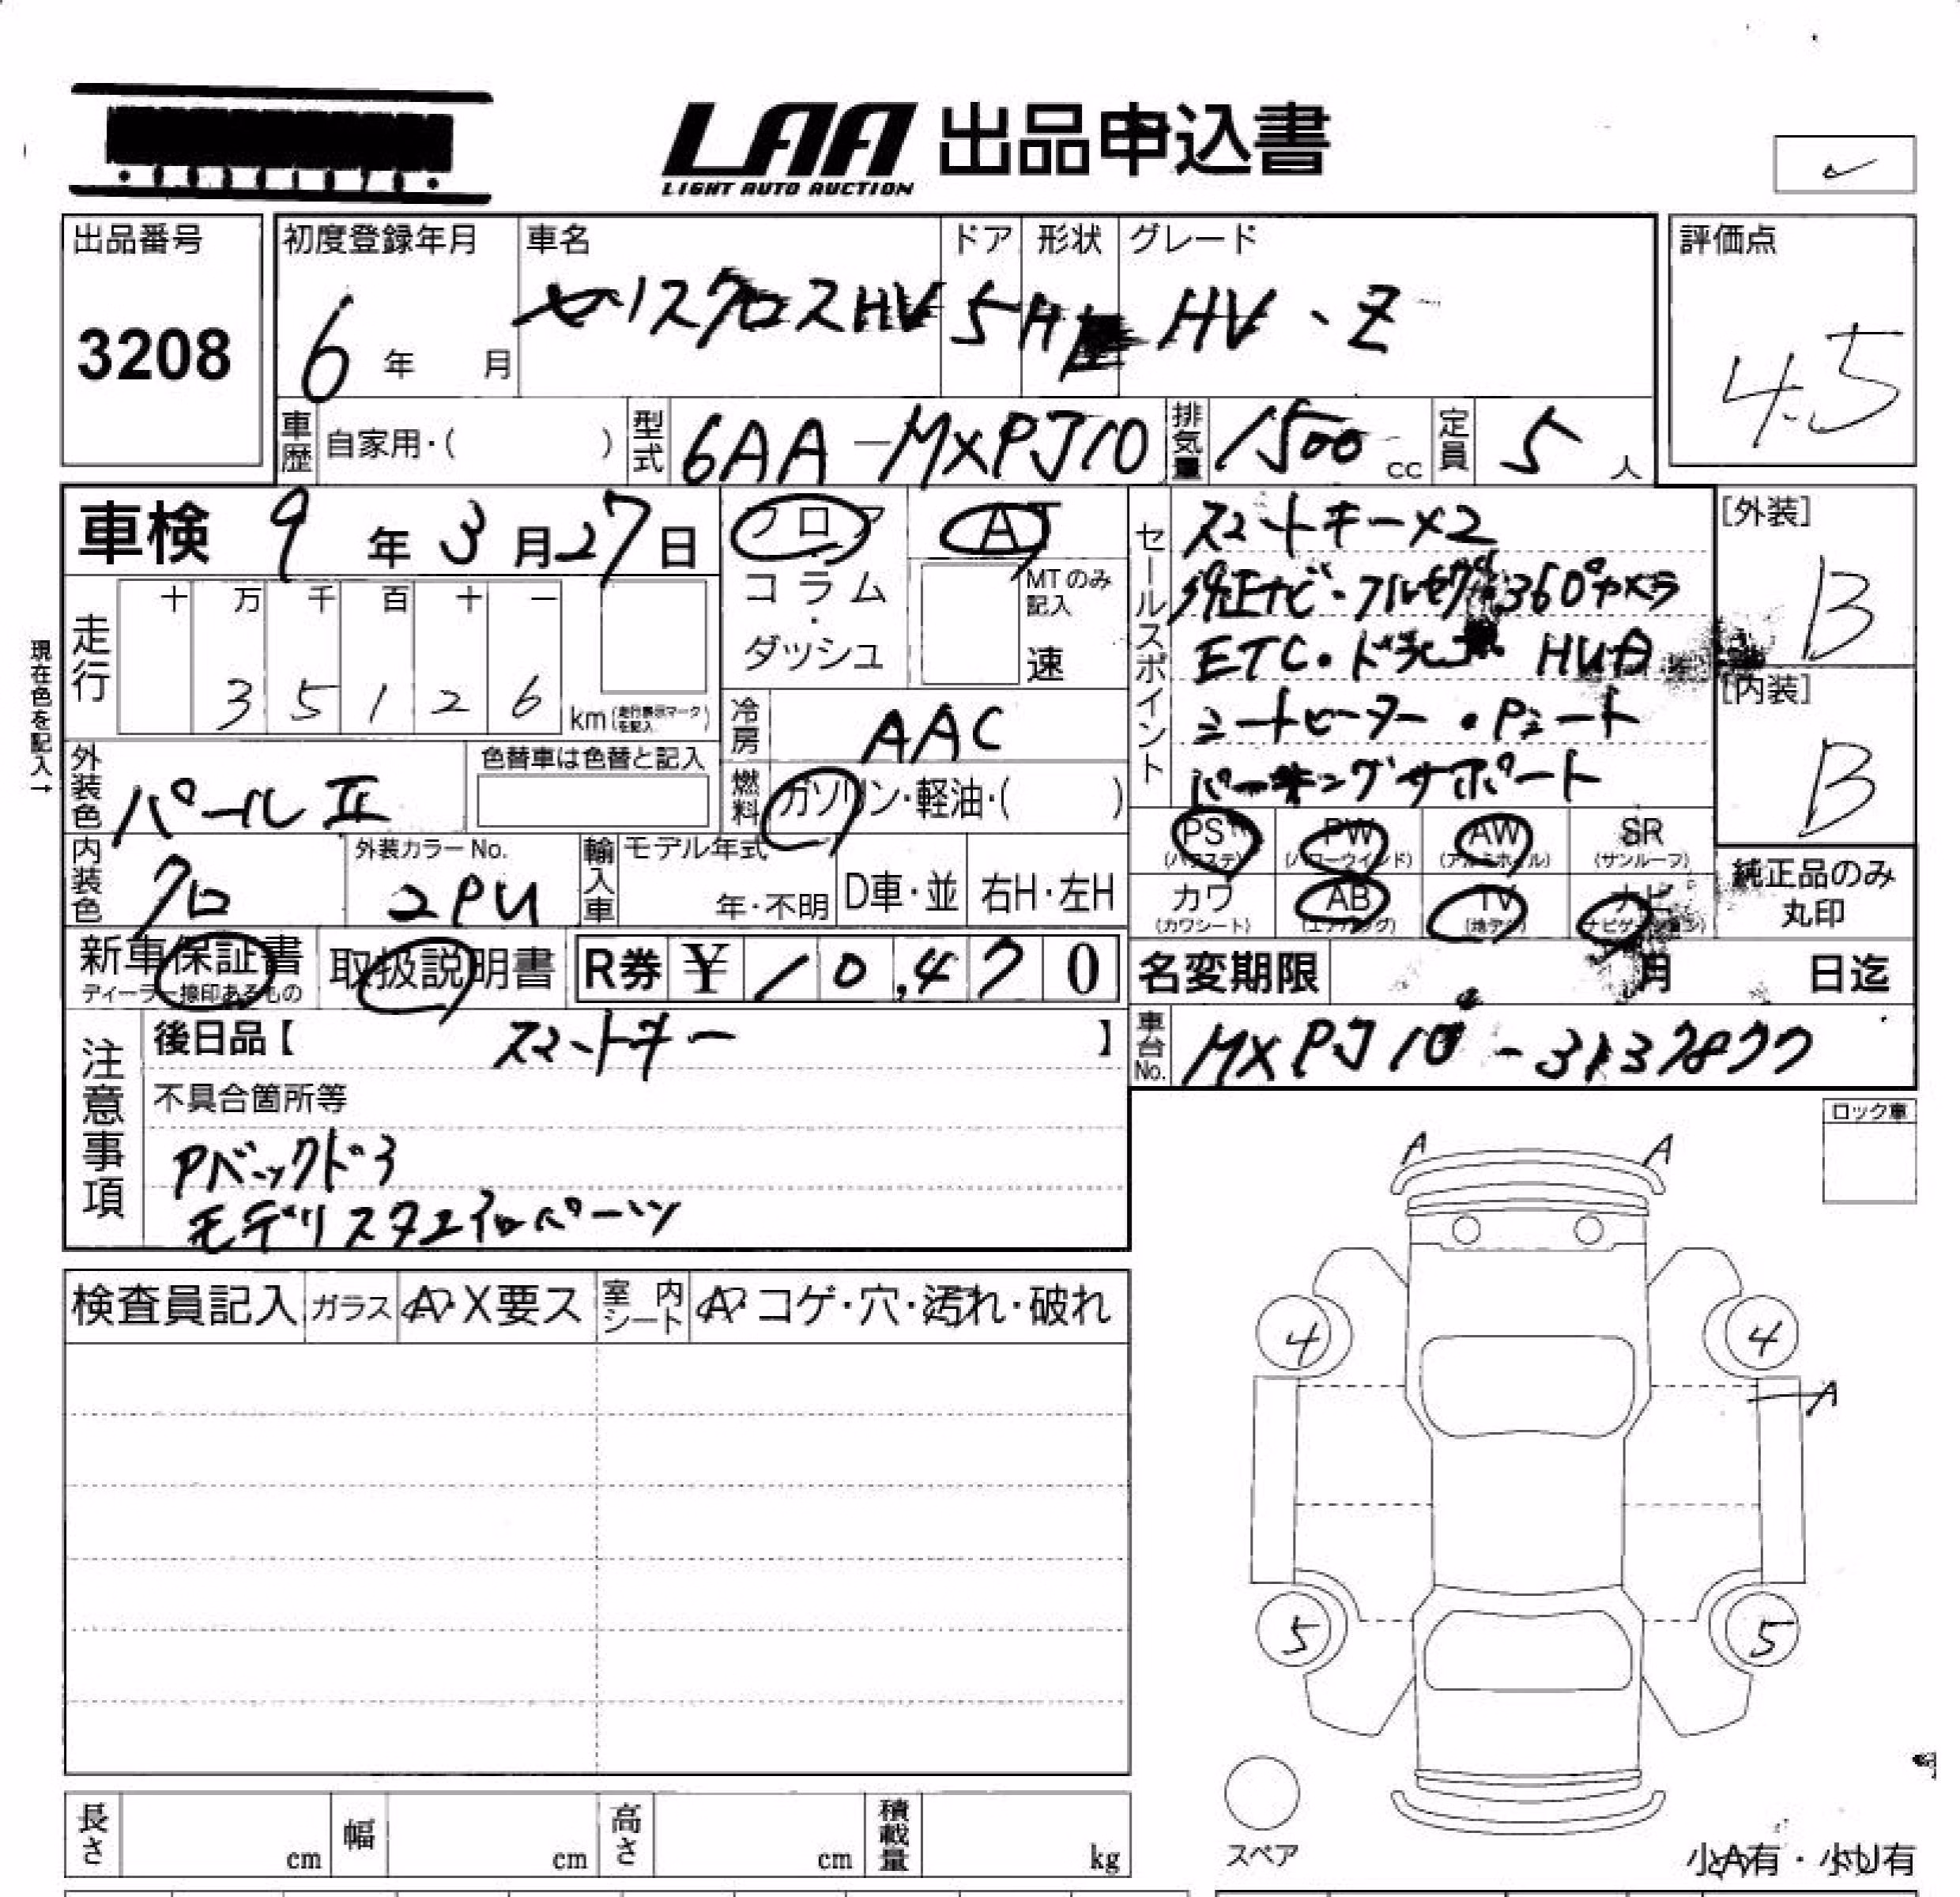 LAA 出品申込書
LIGHT AUTO AUCTION
出品番号
3208
初度登録年月
6 年 月
車名
ヤリスクロスHV
ドア
5
形状
H
グレード
HV・Z
評価点
4.5
車歴 自家用・( )
型式 6AA-MXPJ10
排気量 1500 cc
定員 5 人
車検 9 年 3 月 27 日
フロア
コラム
・
ダッシュ
AT
MTのみ記入
速
セールスポイント
スマートキー×2
純正ナビ・フルセグ 360°カメラ
ETC・ドラレコ HUD
シートヒーター・Pシート
パーキングサポート
[外装]
B
[内装]
B
現在色を記入→
走行
十 万 千 百 十 一
3 5 1 2 6 km (走行表示マークを記入)
冷房 AAC
燃料 ガソリン・軽油・( )
外装色 パールII
色替車は色替と記入
内装色 クロ
外装カラーNo.
2PU
輸入車 モデル年式
年・不明 D車・並 右H・左H
PS (パワステ)
PW (パワーウインド)
AW (アルミホイル)
SR (サンルーフ)
カワ (カワシート)
AB (エアバッグ)
TV (地デジ)
ナビ
純正品のみ
丸印
新車保証書
ディーラー捺印あるもの
取扱説明書
R券 ¥ 10,470
名変期限 月 日迄
車台No. MXPJ10-3137877
注意事項
後日品【 スマートキー 】
不具合箇所等
Pバックドア
モデリスタエアロパーツ
ロック車
検査員記入 ガラス A・X要ス 室内シート A・コゲ・穴・汚れ・破れ
A A
4 4
A
5 5
スペア
小A有・小U有
長さ cm 幅 cm 高さ cm 積載量 kg